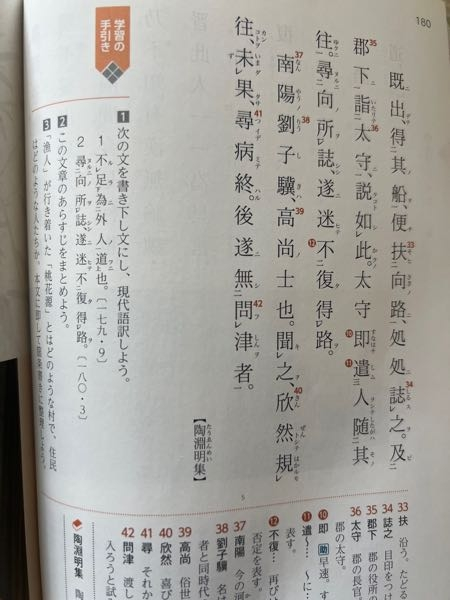 180
既出、得其船、便扶向路、処処誌之。及
郡下、詣太守、説如此。太守即遣人随其
往。尋向所誌、遂迷不復得路。
南陽劉子驥、高尚士也。聞之、欣然規
往、未果、尋病終。後遂無問津者。
【陶淵明集】
5
学習の手引き
1 次の文を書き下し文にし、現代語訳しよう。
1 不足為外人道也。〔一七九・9〕
2 尋向所誌遂迷不復得路。〔一八〇・3〕
2 この文章のあらすじをまとめよう。
3 「漁人」が行き着いた「桃花源」とはどのような村で、住民
はどのような人たちか。本文に即して箇条書きに整理しよう。
33 扶 沿う。たどる
34 誌之 目印をつけ
35 郡下 郡の役所の
36 太守 郡の長官。
郡の太守。
10 即 助 早速。す
11 遣〜 〜に…
表す。
12 不復… 再び
否定を表す。
37 南陽 今の河
38 劉子驥 名は
者と同時代
39 高尚 俗世
40 欣然 喜び
41 尋 それか
42 問津 渡し
入ろうと試
陶淵明集 陶